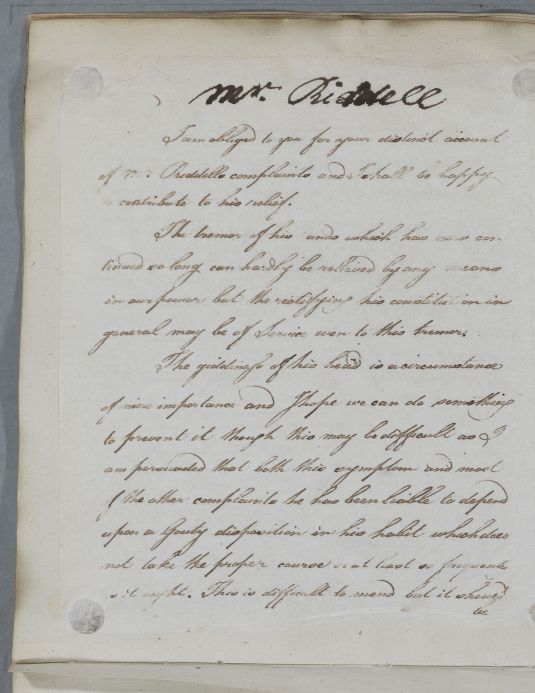 Mr. Riddell
I am obliged to you for your distinct account
of Mr. Riddells complaints and I shall be happy
to contribute to his relief.
The tremor of his ands which has now con
tinued so long can hardly be relieved by any means
in our power but the rectifying his constitution in
general may be of Service even to this tremor.
The giddiness of his head is a circumstance
of more importance and I hope we can do something
to prevent it though this may be difficult as I
am persuaded that both this symptom and most
of the other complaints he has been liable to depend
upon a Gouty disposition in his habit which does
not take the proper course or at least so frequently
as it ought. This is difficult to mend but it should
be